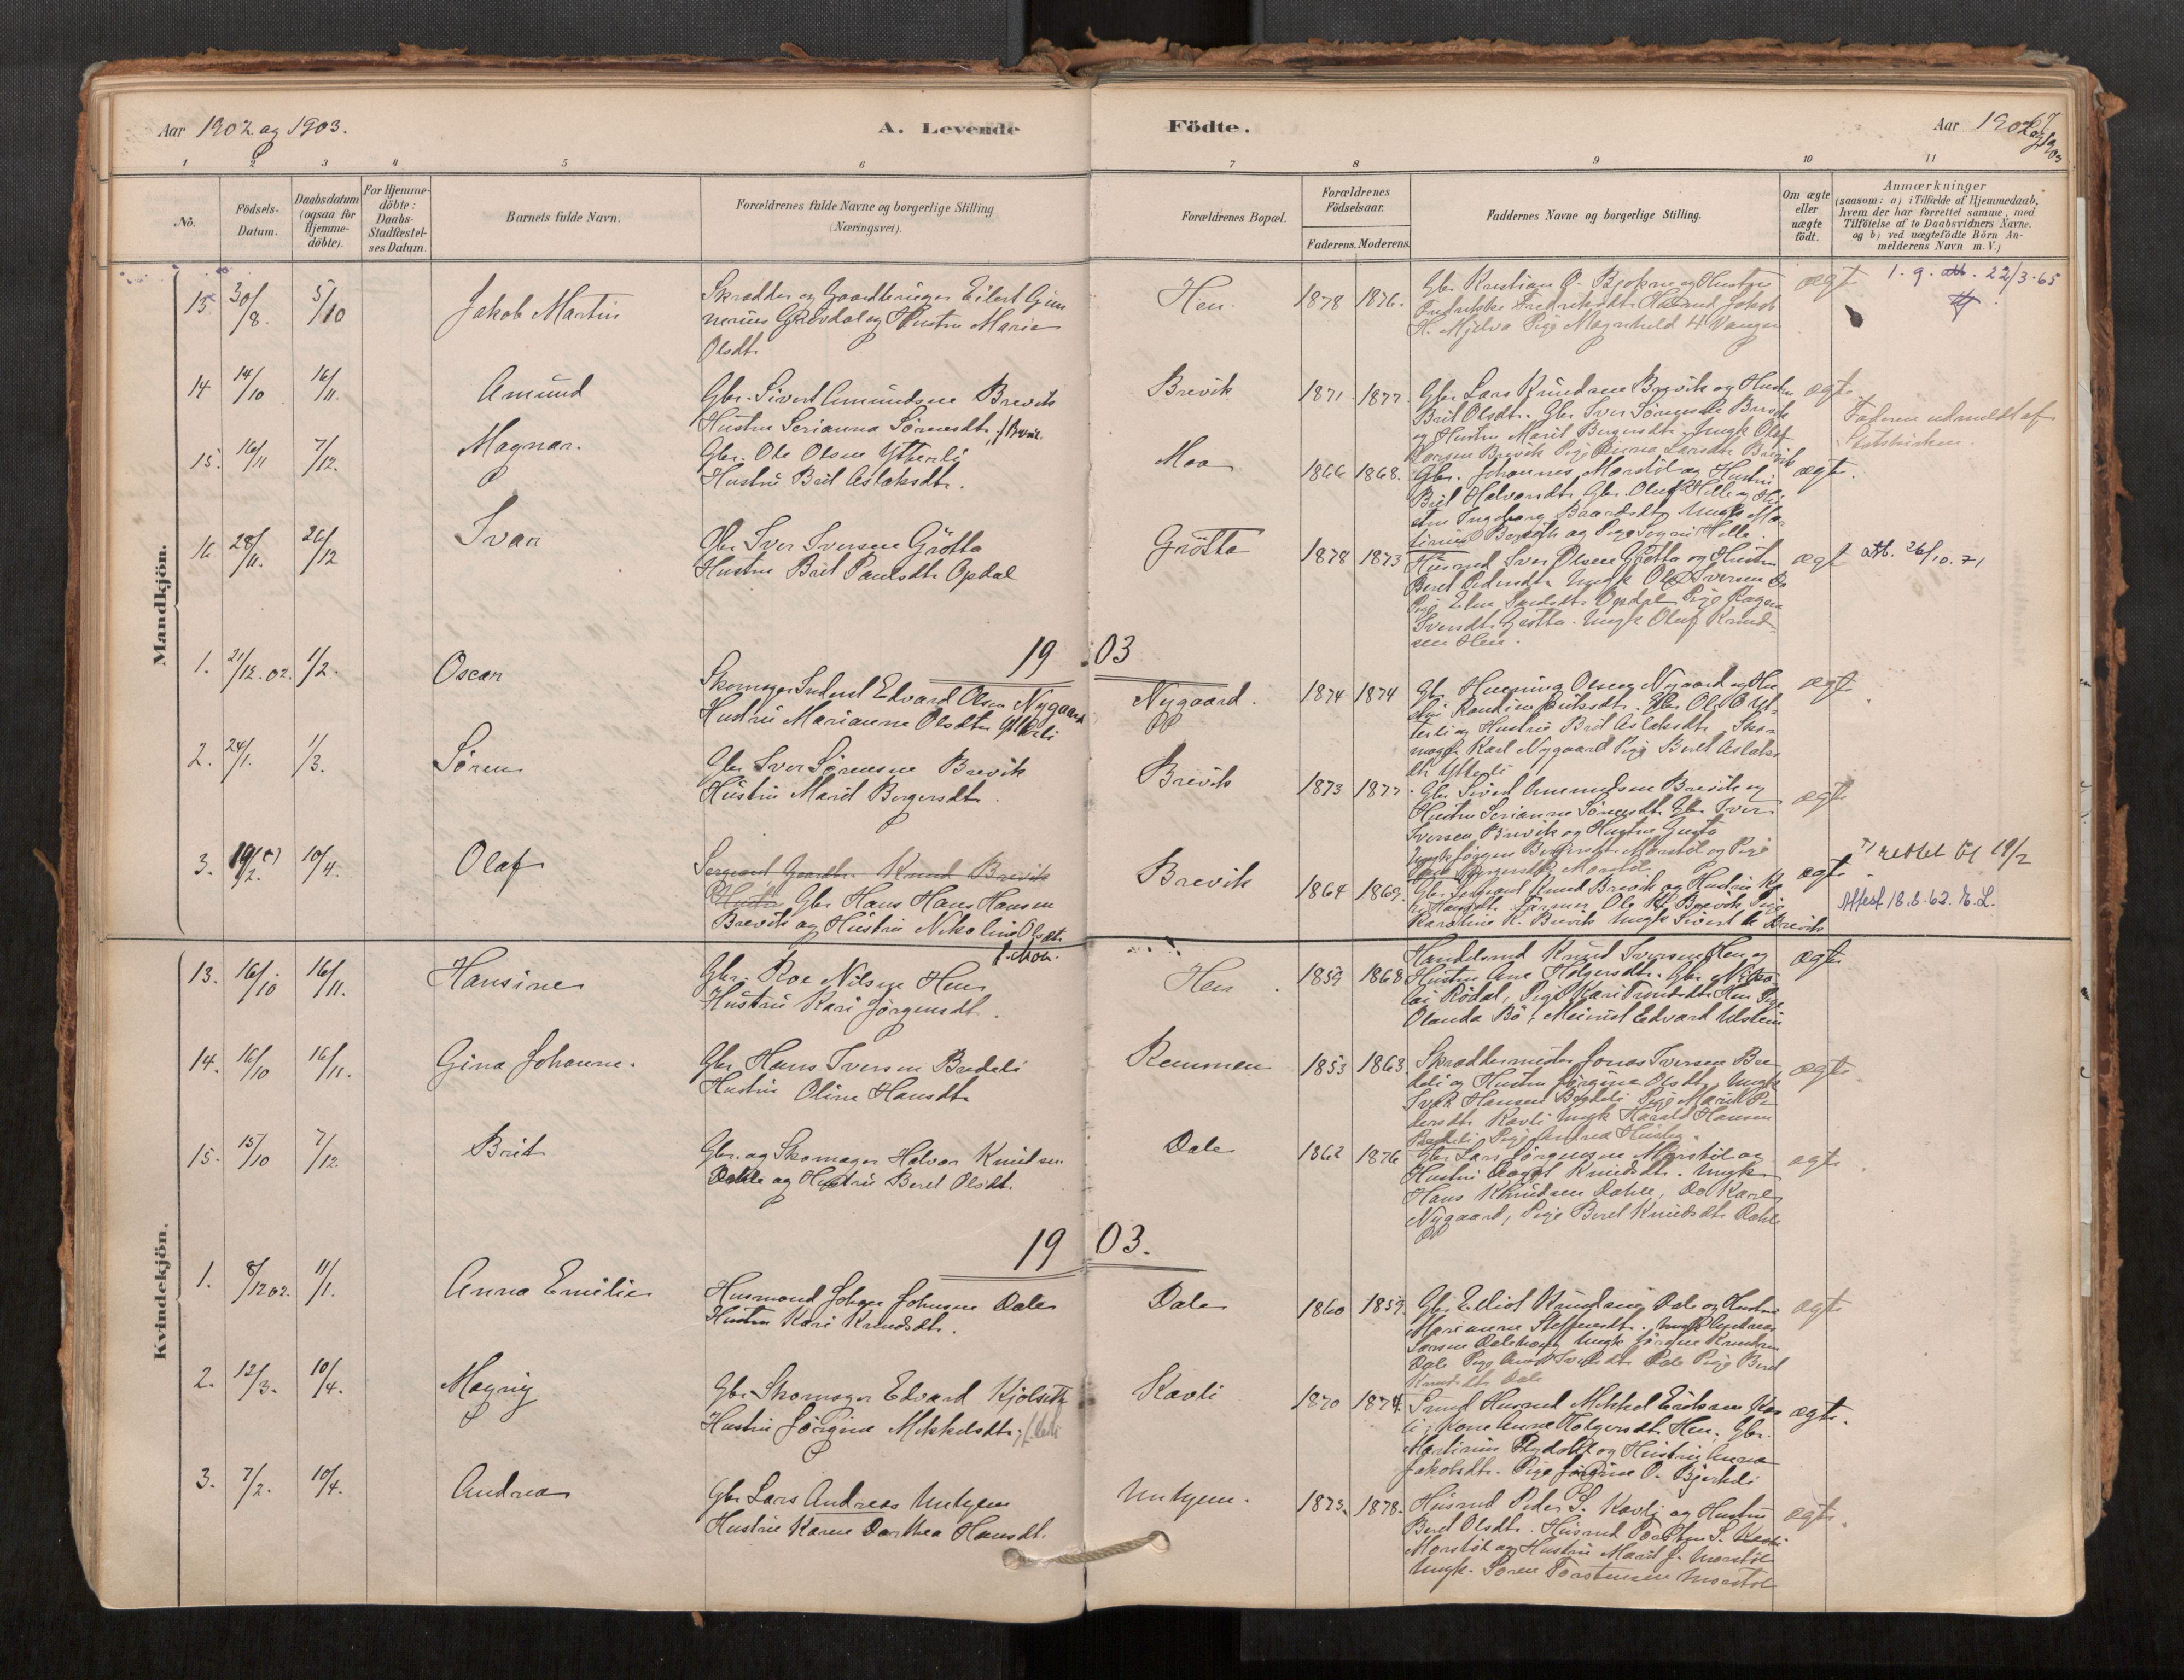 Aar 1902 og 1903.
A. Levende
Födte.
Aar 1902 og 1903
67
1 2 3 4 5 6 7 8 9 10 11
No.
Födsels-
Datum.
Daabsdatum
(ogsaa for
Hjemme-
döbte).
For Hjemme-
döbte:
Daabs-
Stadfæstel-
ses Datum.
Barnets fulde Navn.
Forældrenes fulde Navne og borgerlige Stilling
(Næringsvei).
Forældrenes Bopæl.
Forældrenes
Födselsaar.
Faderens. Moderens.
Faddernes Navne og borgerlige Stilling.
Om ægte
eller
uægte
födt.
Anmærkninger
(saasom: a) i Tilfælde af Hjemmedaab,
hvem der har forrettet samme, med
Tilföielse af to Daabsvidners Navne,
og b) ved uægtefödte Börn An-
melderens Navn m. V.)
Mandkjön.
13. 30/8. 5/10 Jakob Martin
Skrædder og Gaardbruger Eilert
og Hustru Marie
Olsdt.
Hen 1878 1876.
H. Mjelva Pige Magnhild
ægt 22/3-65
14 14/10 16/11 Amund
Gbr. Sivert Amundsen Brevik
Hustru Serianna Sörensdt.
Brevik 1871 1877
Gbr Lars Knudsen Brevik og Hustru
Brit Olsdt. Gbr Iver Sörensen Brevik
og Hustru Marit Bergersdt. Ungk Olaf
Larsen Brevik Pige Anna Larsdt Brevik
ægt.
Faderen udmeldt af
Statskirken.
15. 16/11 7/12. Magnar.
Gbr. Ole Olsen Ytterli
Hustru Brit Aslaksdt.
Moa 1866 1868.
Gbr. Johannes Morstöl og Hustru
Brit Halvorsdt. Gbr. Oluf Helle og Hu-
stru Ingeborg Baardsdt. Ungk Mar-
ægte.
16. 28/11. 26/12 Ivar
Gbr. Iver Iversen Grötta
Hustru Brit Paulsdt. Opdal
Grötta 1878 1873
Husmd Iver Olsen Grötta og Hustru
Beret Pedersdt. Ungk Ole Iversen Do
Iversdt. Grötta. Ungk Oluf Knud-
sen Hen.
ægt att. 26/10.71
1903
1. 21/12.02. 1/2. Oscar
Edvard Olsen Nygaard
Hustru Marianne Olsdt. Ytterli
Nygaard. 1874 1874
Gbr. Henning Olsen Nygaard og Hu-
terli og Hustru Brit Aslaksdt. Sko-
mager Karl Nygaard Pige Beret Aslaks-
dt Ytterli
ægt.
2. 24/1. 1/3. Sören
Gbr Iver Sörensen Brevik
Hustru Marit Bergersdt.
Brevik 1873 1877
Gbr Sivert Amundsen Brevik og
Hustru Serianne Sörensdt. Gbr Iver
Iversen Brevik og Hustru
ægt.
3. 19/2. 10/4. Olaf
Sergeant Gaardbr. Knud Brevik
Hustru Gbr Hans Hans Hansen
Brevik og Hustru Nikoline Olsdt.
Brevik 1864 1869.
Gbr Sergeant Knud Brevik og Hustru
Hansdt. Farmer Ole K. Brevik Pige
Karoline K. Brevik Ungk Sivert K Brevik
ægte rettet til 19/2
Attest 18.8.62. E.L.
Kvindekjön.
13. 16/10 16/11. Hansine
Gbr. Roe Nilsen Hen
Hustru Kari Jörgensdt.
Hen. 1859 1868
Handelsmd Knud Iversen Hen og
Hustru Ane Holgersdt. Gbr Nicko-
lai Rödal, Pige Kari Knutsdt. Hen Pige
Olanda Bö, Edvard Ulstein
ægte.
14. 16/10 16/11. Gina Johanne.
Gbr Hans Iversen Bredeli
Hustru Oline Hansdt.
Remmen 1853 1863.
Skræddermester Jonas Iversen Bre-
deli og Hustru Jörgine Olsdt. Ungk
Ivar Hansen Bredeli Pige Marit Pe-
dersdt. Kavli Ungk Harald Hansen
Bredeli Pige Andrea
ægte
15. 15/10 7/12. Brit
Gbr. og Skomager Halvor Knudsen
Dahle og Hustru Beret Olsdt.
Dale 1862 1876
Gbr Lars Jörgensen Morstöl og
Hustru Knudsdt. Ungk
Hans Knudsen Dahle, Do Karl
Nygaard, Pige Beret Knudsdt. Dahle
ægte.
1903.
1. 8/12 02. 11/1. Anna Emilie
Husmand Johan Johnsen Dale
Hustru Kari Knudsdt.
Dale 1860 1859.
Gbr Elliot Knudsen Dale og Hustru
Marianne Steffensdt. Ungk Andreas
Larsen Ungk Jörgen Knudsen
Dale Pige Iversdt Dale Pige Beret
Knudsdt. Dale
ægte
2. 12/3. 10/4. Magny
Gbr. Skomager Edvard Kjölseth
Hustru Jörgine Mikkelsdt.
Kavli 1870 1874.
Husmd Mikkel Eriksen Kav-
li, Kone Anne Holgersdt. Hen, Gbr.
Martinus og Hustru Anna
Jakobsdt. Pige Jörgine O. Bjerkeli
ægte.
3. 7/2. 10/4. Andrea
Gbr Lars Andreas Unhjem
Hustru Karen Dorthea Hansdt.
Unhjem. 1873. 1878.
Husmd Peder S. Kavli og Hustru
Beret Olsdt. Husmd Torsten S.
Morstöl og Hustru Marit J. Morstöl
Ungk. Sören Torstensen Morstöl
ægte.